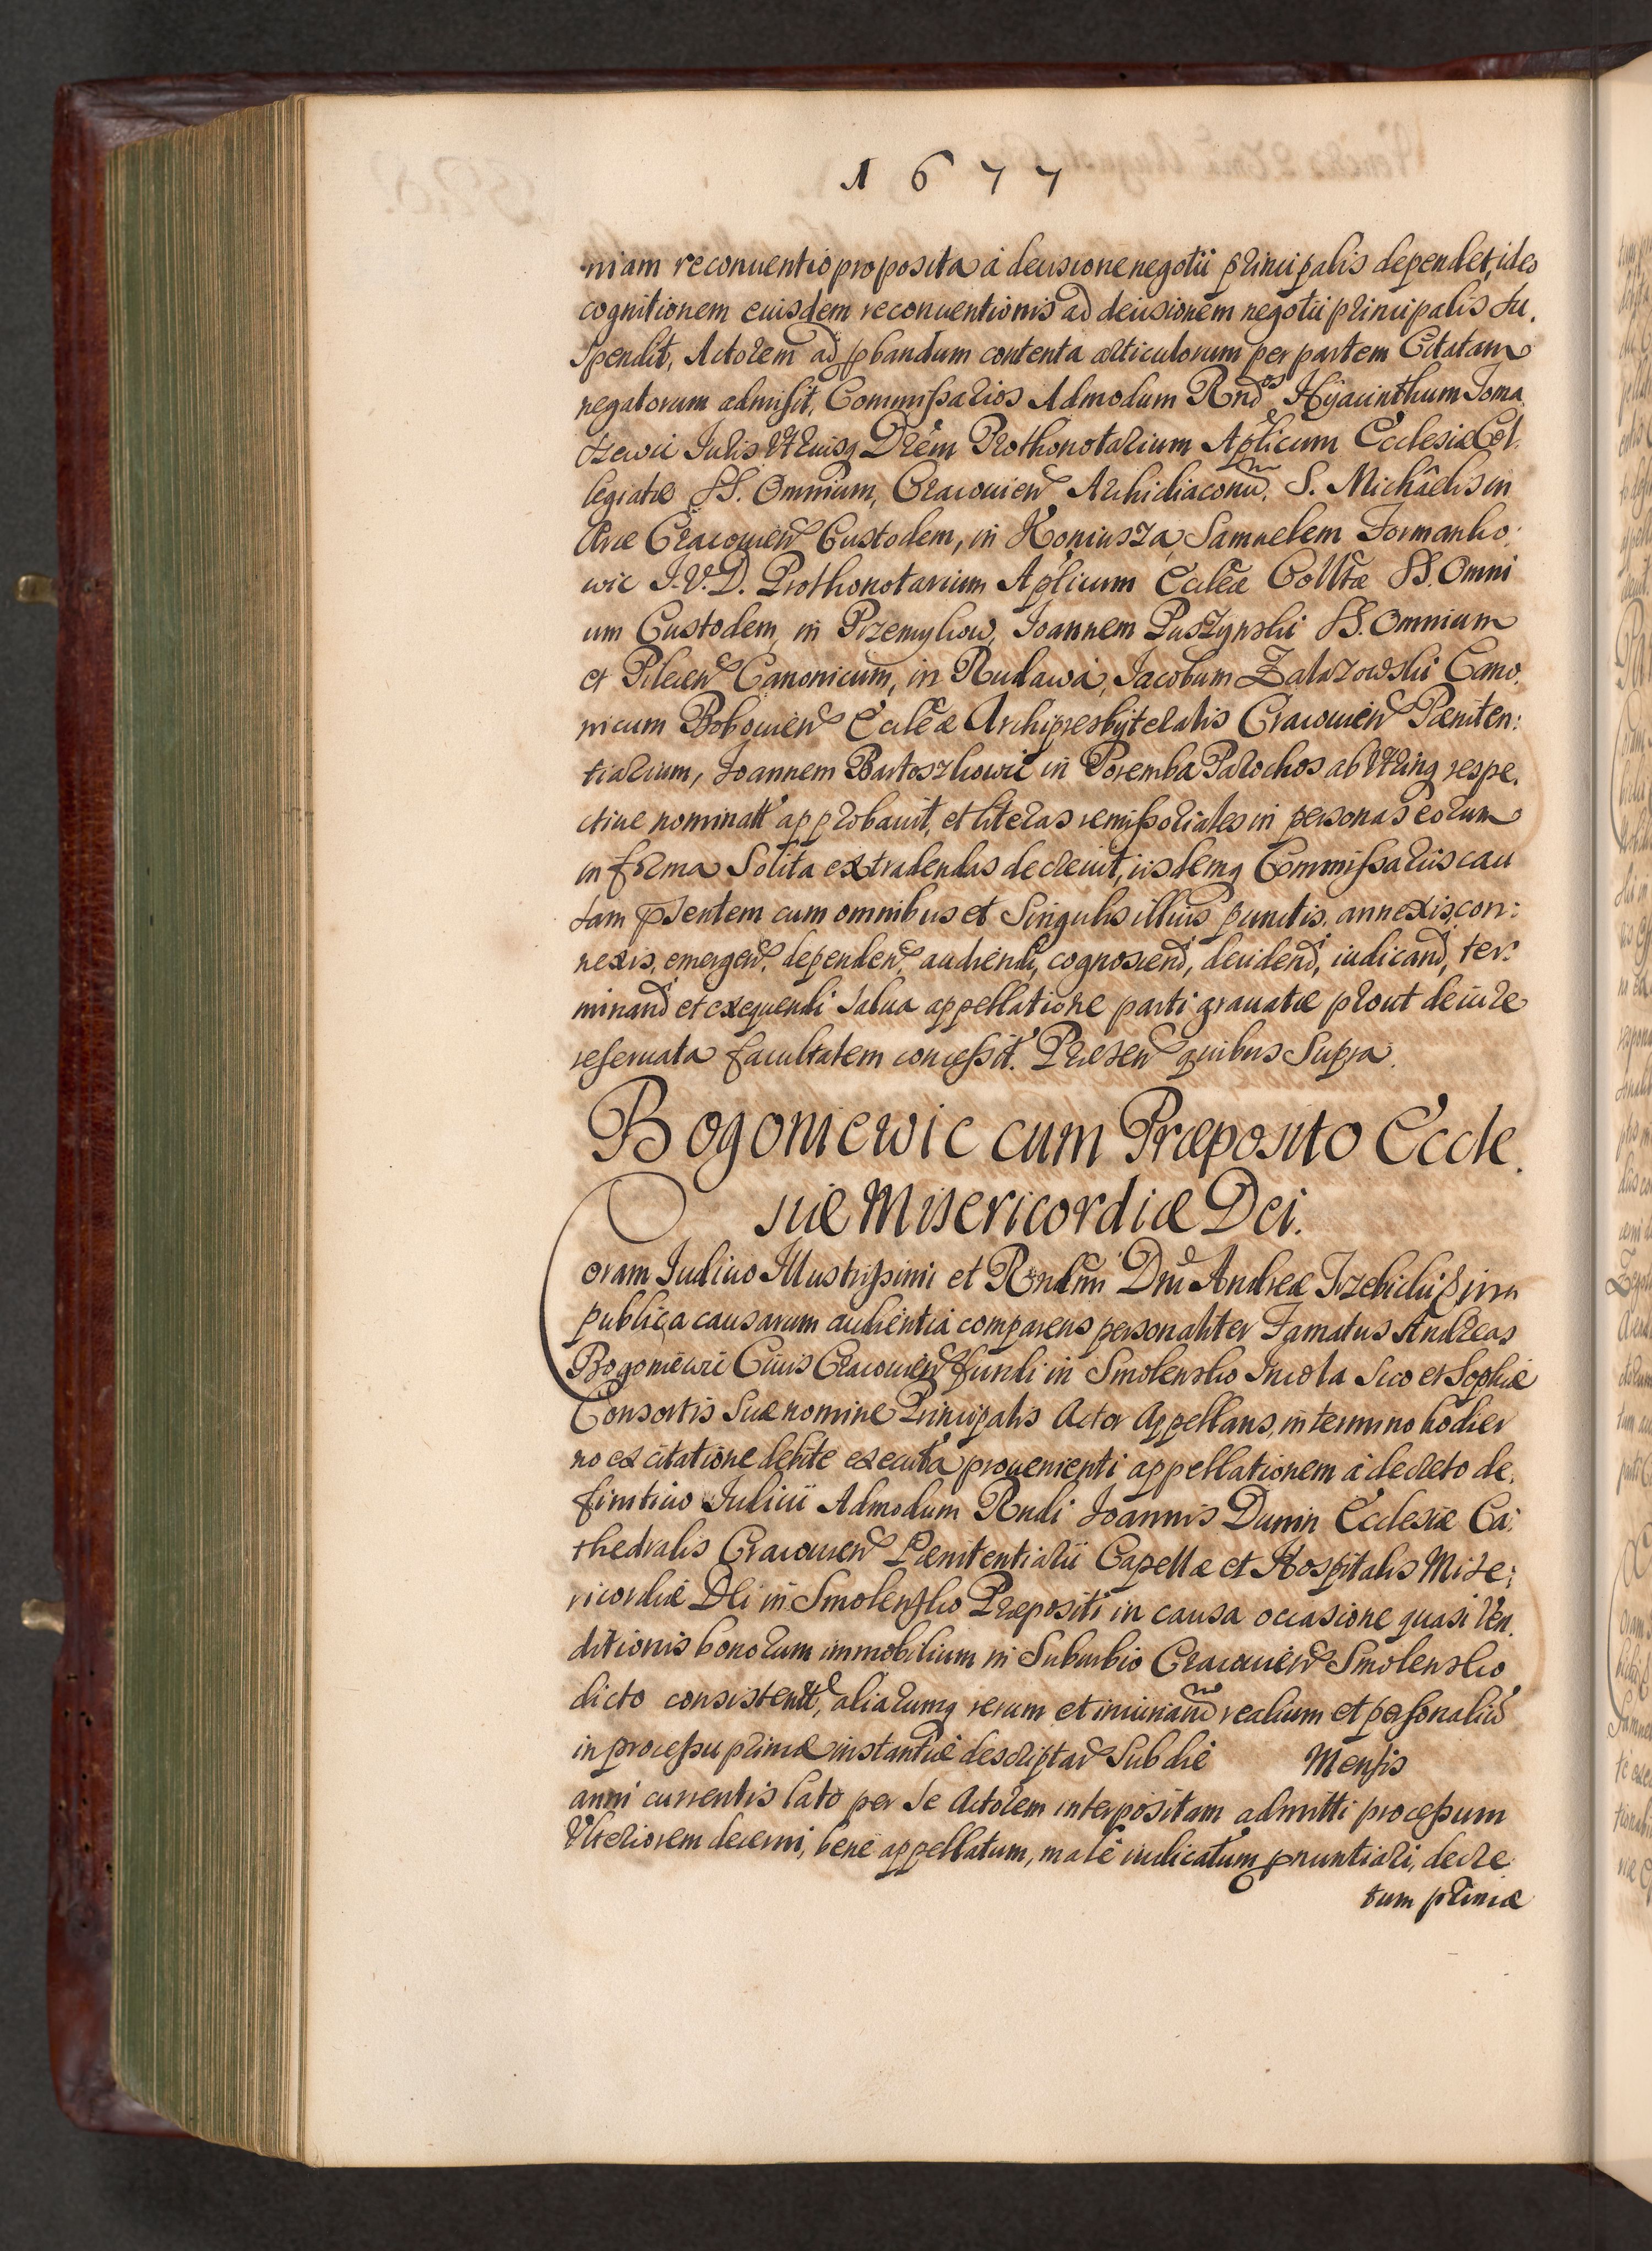 1677
niam reconuentio proposita à decisione negotii principalis dependet, ideo
cognitionem eiusdem reconuentionis ad decisionem negotii principalis su.
spendit, Actorem ad pbandum contenta articulorum per partem Citatam
negatorum admisit, Commissarios Admodum Rndos Hyacinthum Toma
szewic Iuris Vtriusq Drem Prothonotarium Aplicum Ecclesiæ Col.
legiatæ SS. Omnium, Cracouien Archidiaconum. S. Michaelis in
Arce Cracouien Custodem, in Koniusza, Samuelem Formanko.
wic I.V.D. Prothonotarium Aplicum Eccleæ Colltæ SS. Omni
um Custodem, in Przemykow, Ioannem Puszynski SS. Omnium
et Pilecen Canonicum, in Rudawa, Iacobum Zalazowski Cano.
nicum Bobouien Eccleæ Archipresbyteralis Cracouien Pæniten:
tiarium, Ioannem Bartoszkowic in Poremba Parochos ab Vtrinq respe.
ctiue nominatt approbauit, et literas remissoriales in personas eorum
in forma Solita extradendas decreuit, iisdemq Commissariis cau
sam pntem cum omnibus et Singulis illius punctis, annexis, con:
nexis, emergen, dependen, audiendi, cognoscend, decidend, iudicand, ter:
minand et exequendi salua appellatione parti grauatæ prout de iure
reseruata facultatem concessit. Præsen quibus Supra.
Bogoniewic cum Præposito Eccle.
siæ Misericordiæ Dei.
Coram Iudicio Illustrissimi et Rndmi Dni Andreæ Trzebicki in
publica causarum audientia comparens personaliter Famatus Andreas
Bogoniewic Ciuis Cracouien fundi in Smolensko Incola Suo et Sophiæ
Consortis Suæ nomine Principalis Actor Appellans, in termino hodier
no ex citatione debite executa prouenienti appellationem à decreto de.
finitiuo Iudicii Admodum Rndi Ioannis Dunin Ecclesiæ Ca:
thedralis Cracouien Pænitentiarii Capellæ et Hospitalis Mise:
ricordiæ Dei in Smolensko Præpositi in causa occasione quasi Ven.
ditionis bonorum immobilium in Suburbio Cracouien Smolensko
dicto consistentt, aliarumq rerum et iniuriarum realium et personaliu
in processu primæ instantiæ descriptar Sub die Mensis
anni currentis lato per Se Actorem interpositam admitti processum
Vlteriorem decerni, bene appellatum, male iudicatum pnuntiari, decre
tum primæ